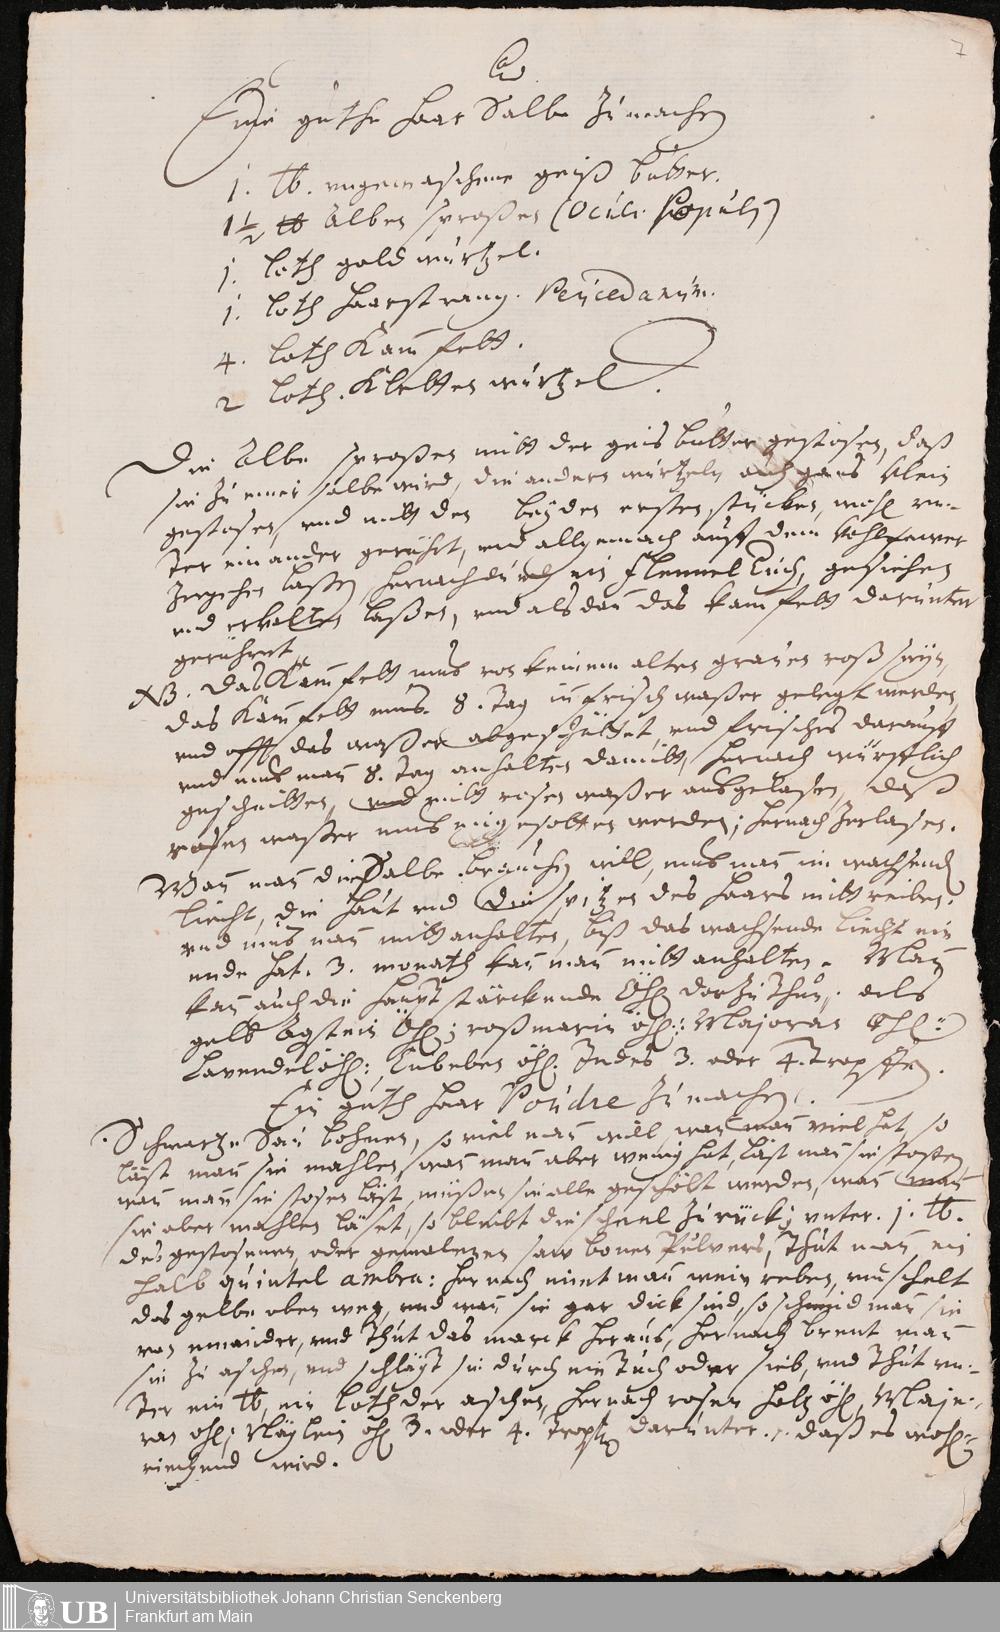 7
Eine guthe Haar Salbe Zu machen
1. lb. ungewaschene geiß butter.
1½ lb Alber sproßen (Oculi Populi)
1. loth gold wurtzel.
1. loth Haarstrang. Peucedanum.
4. loth Kam fett.
2 loth. Kletten wurtzel.
Die Alber sproßen mitt der geis butter gestosen, daß
sie zu einer salbe wird, die andern wurtzeln auch gans klein
gestosen, und mitt den beyden ersten stucken, wohl un-
ter einander gerührt, und allgemach auff dem Kohlfewer
zergehen laßen, hernach durch ein flennel Tuch, gesiehen
und erkalten laßen, und als dan das kam fett darunter
gerühret.
NB. das Kam fett mus von keinem alten grauen roß seyn,
das Kam fett mus. 8. Tag in frisch waßer gelegt werden,
und offt das waßer abgeschüttet, und frisches darauff
und mus man 8. Tag anhalten damitt, hernach würfflich
geschnitten, und mitt rosen waßer ausgelasen, daß
rosen waßer mus eingesotten werden; hernach zerlasen.
Wan man die Salbe brauchen will, mus man im wachsend
liecht, die haut und die spitzen des Haars mitt reiben.
und mus man mitt anhalten, biß das wachsende liecht ein
ende hat. 3. monath kan man mitt anhalten. Man
kan auch die haupt stärckende Öhl darzu thun. als
gelb Agstein Öhl; roßmarin öhl: Majoran Öhl:
Lavendel öhl; Cubeben öhl. Jedes 3. oder 4. Tropffen.
Ein guth Haar Poudre Zu machen.
Schwartze Sau bohnen, so viel man will, wan man viel hat, so
läst man sie mahlen, wan man aber wenig hat, läst man sie stosen,
wan man sie stosen läst, müßen sie alle geschölt werden, wan man
sie aber mahlen läset, so bleibt die scheel Zurück; unter. 1. lb.
des gestosenen oder gemalenen saw bonen Pulvers, thut man ein
halb quintel ambra: hernach nimt man wein reben,
das gelbe oben weg, und wan sie gar dick sind, so schneid man sie
von einander, und thut das marck heraus, hernach brent man
sie zu aschen, und schlägt sie durch ein Tuch oder sieb, und thut un-
ter ein lb, ein loth der aschen, hernach rosen holtz öhl, Majo-
ran öhl; Näglein öhl 3. oder 4. tropffen darunter. daß es wohl
riechend wird.
Universitätsbibliothek Johann Christian Senckenberg
Frankfurt am Main
UB